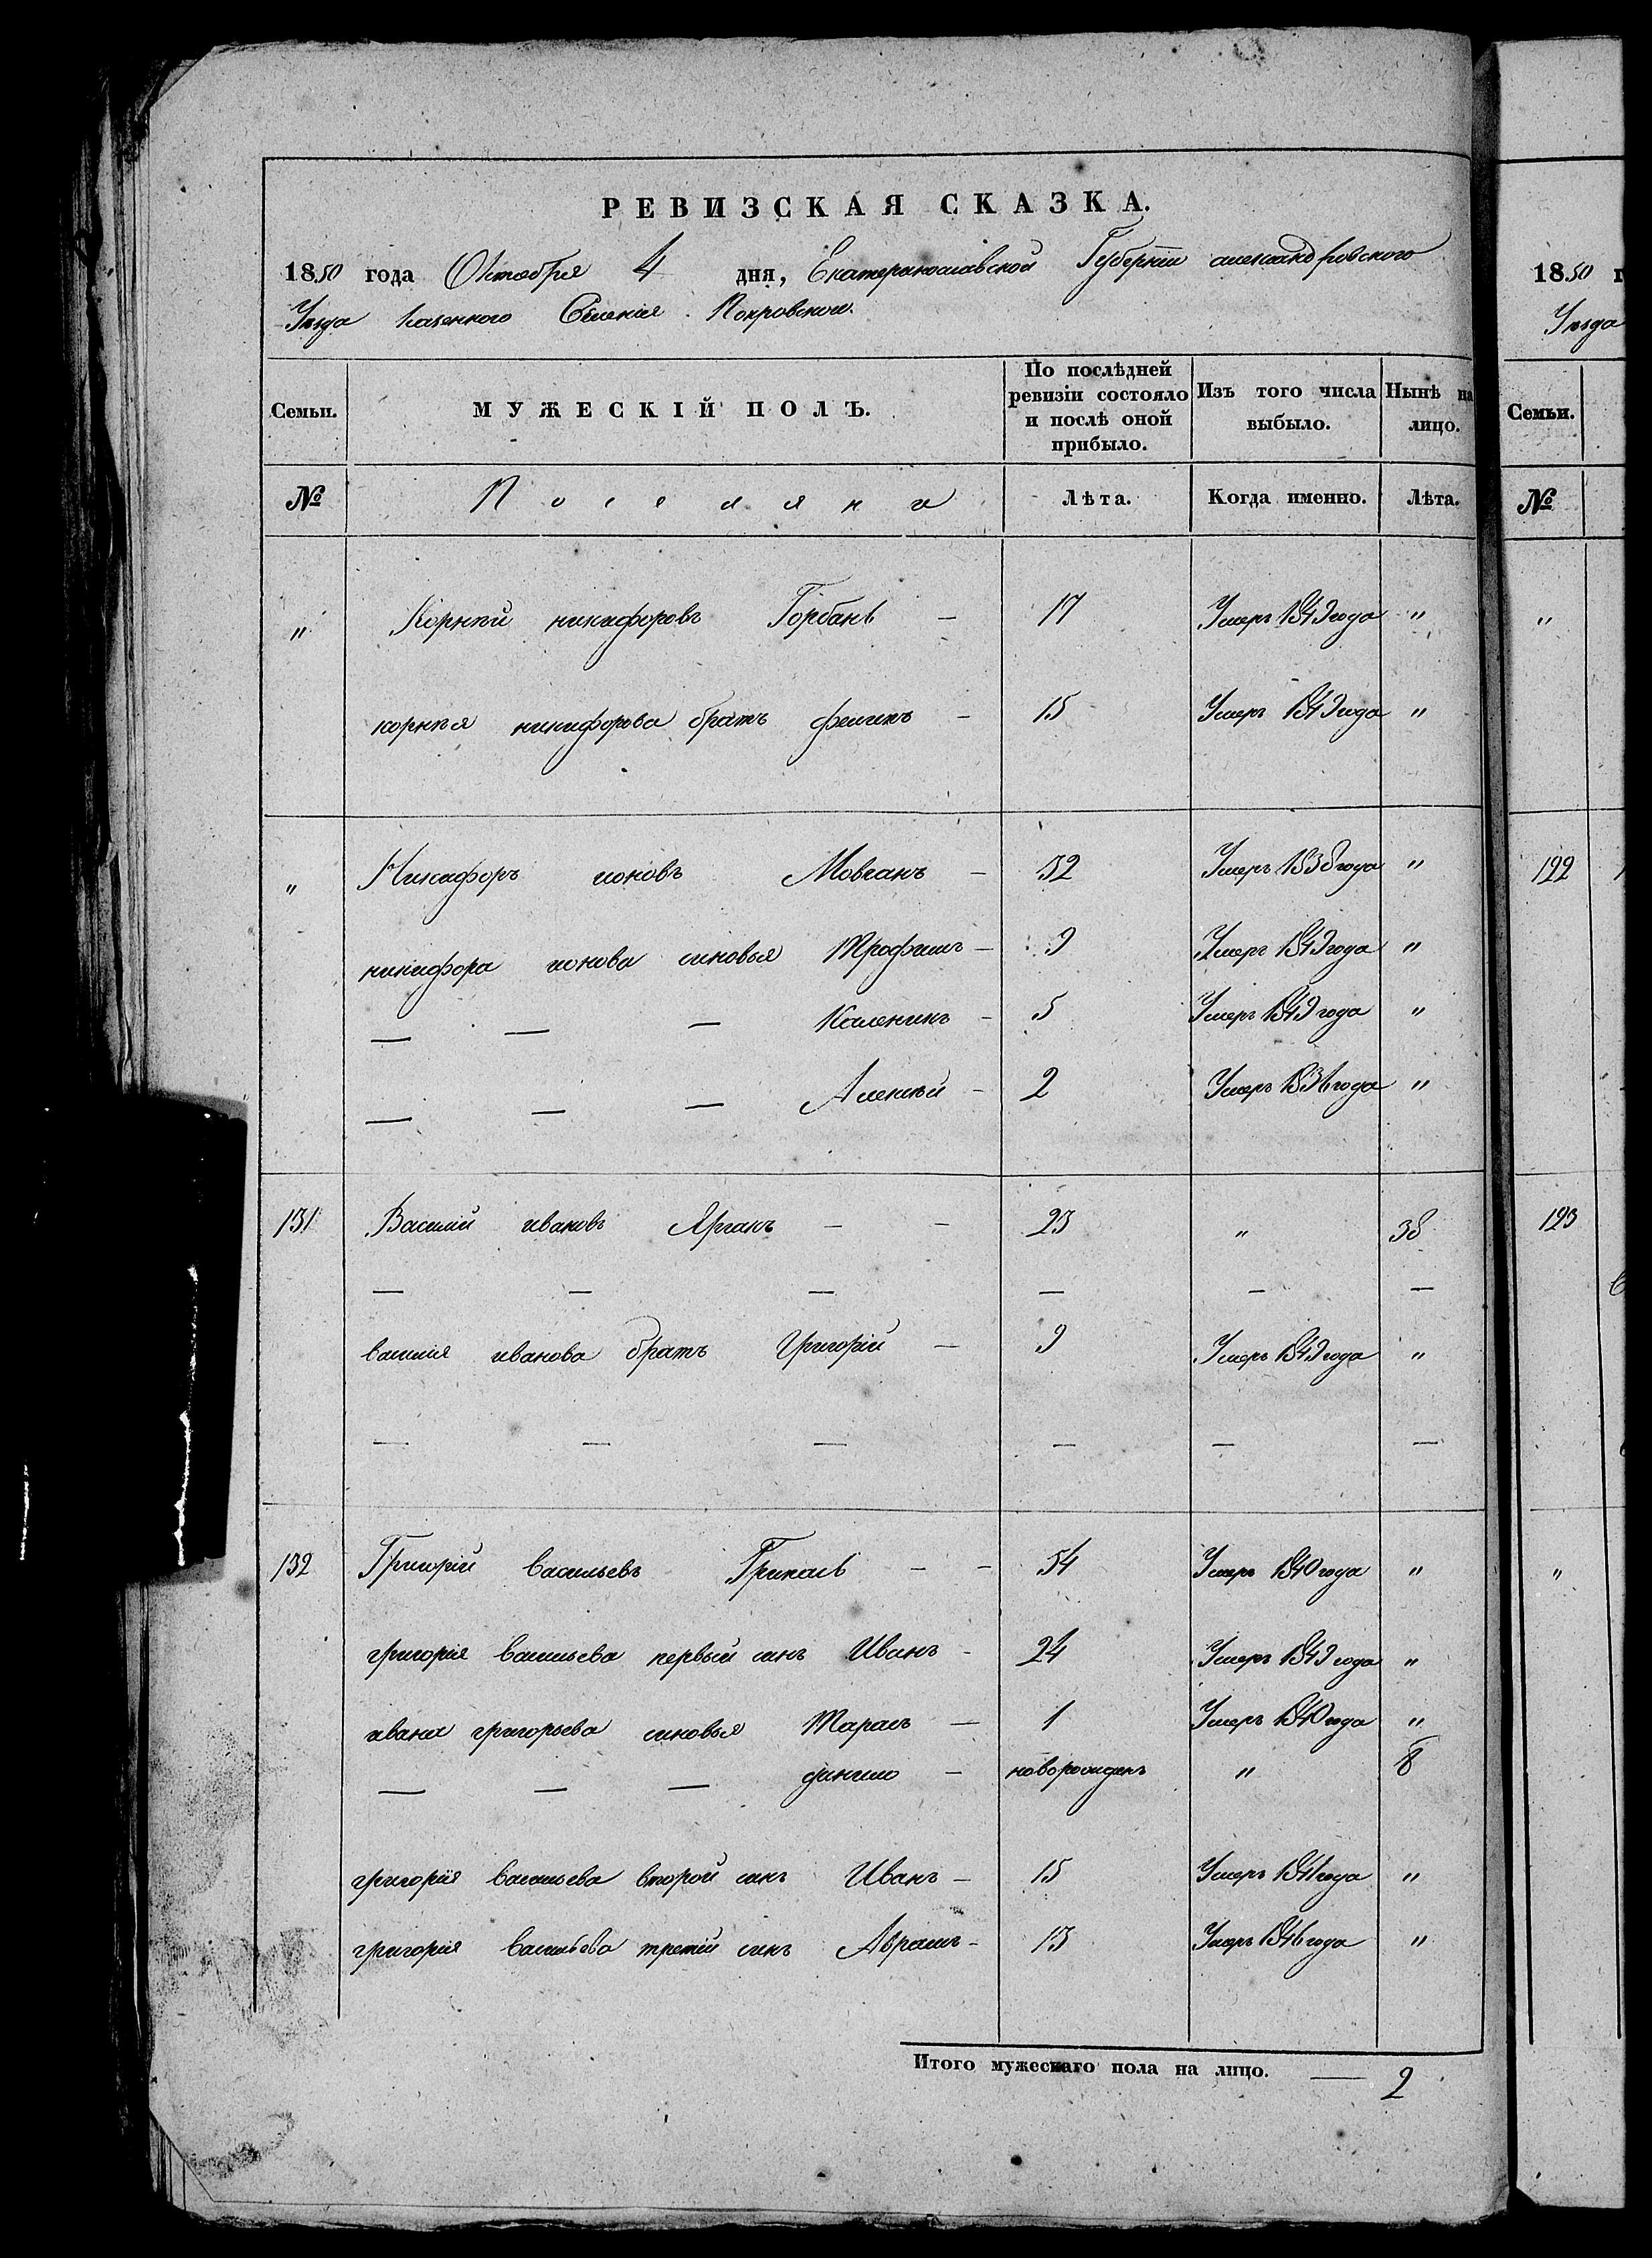 РЕВИЗСКАЯ СКАЗКА.
1850 года Октября 4 дня, Екатеринославской Губерніи александровского
Уѣзда казенного Селенія Покровского.
Семьи. МУЖЕСКІЙ ПОЛЪ. По послѣдней ревизіи состояло и послѣ оной прибыло. Изъ того числа выбыло. Нынѣ на лицо.
№ Поселяни Лѣта. Когда именно. Лѣта.
" Корнѣй никифоровъ Горбань — 17 Умеръ 1849 года "
корнѣя никифорова братъ филипъ — 15 Умеръ 1849 года "
" Никифоръ ионовъ Мовчанъ — 32 Умеръ 1838 года "
никифора ионова синовья Трофимъ — 9 Умеръ 1849 года "
— — — Каленикъ — 5 Умеръ 1849 года "
— — — Алексѣй — 2 Умеръ 1836 года "
131 Василий ивановъ — — 23 " 38
— — — — — —
василия иванова братъ Григорій — 9 Умеръ 1849 года "
— — — — — —
132 Григорій Васильевъ — — 54 Умеръ 1840 года "
григорія Васильева первый синъ Иванъ — 24 Умеръ 1849 года "
ивана григорьева синовья Тарасъ — 1 Умеръ 1840 года "
— — — данило — новорожденъ " 8
григорія Васильева второй синъ Иванъ — 15 Умеръ 1841 года "
григорія Васильева третій синъ Аврамъ — 13 Умеръ 1846 года "
Итого мужескаго пола на лицо. — 2
1850 г
Уѣзда
Семьи.
№
"
122
123
"